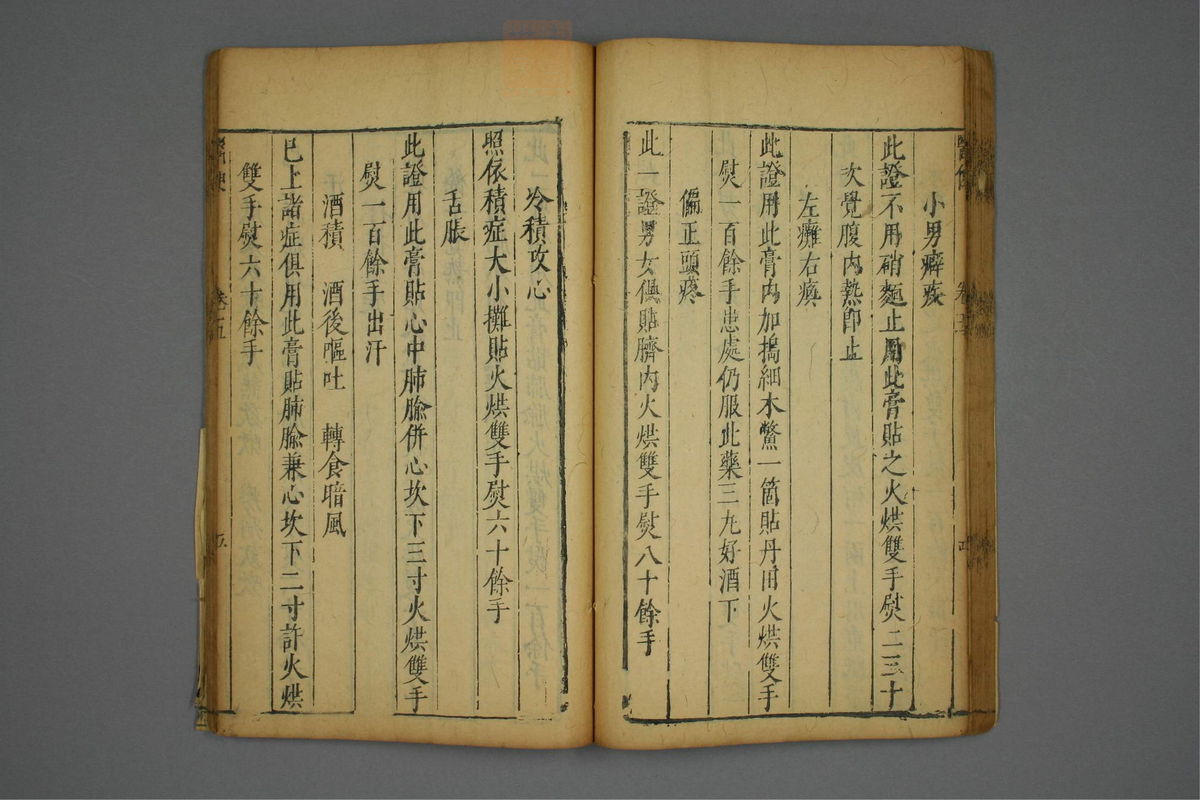 小男癖疾
此證不用硝麵止用此膏貼之火烘雙手熨二三十
次覺腹內熱卽止
左癱右瘓
此證用此膏內加搗細木鱉一箇貼丹田火烘雙手
熨一百餘手患處仍服此藥三九好酒下
偏正頭疼
此一證男女俱貼臍內火烘雙手熨八十餘手
冷積攻心
照依積症大小攤貼火烘雙手熨六十餘手
舌脹
此證用此膏貼心中肺腧併心坎下三寸火烘雙手
熨一百餘手出汗
酒積 酒後嘔吐 轉食暗風
已上諸症俱用此膏貼肺腧兼心坎下二寸許火烘
雙手熨六十餘手
卷五